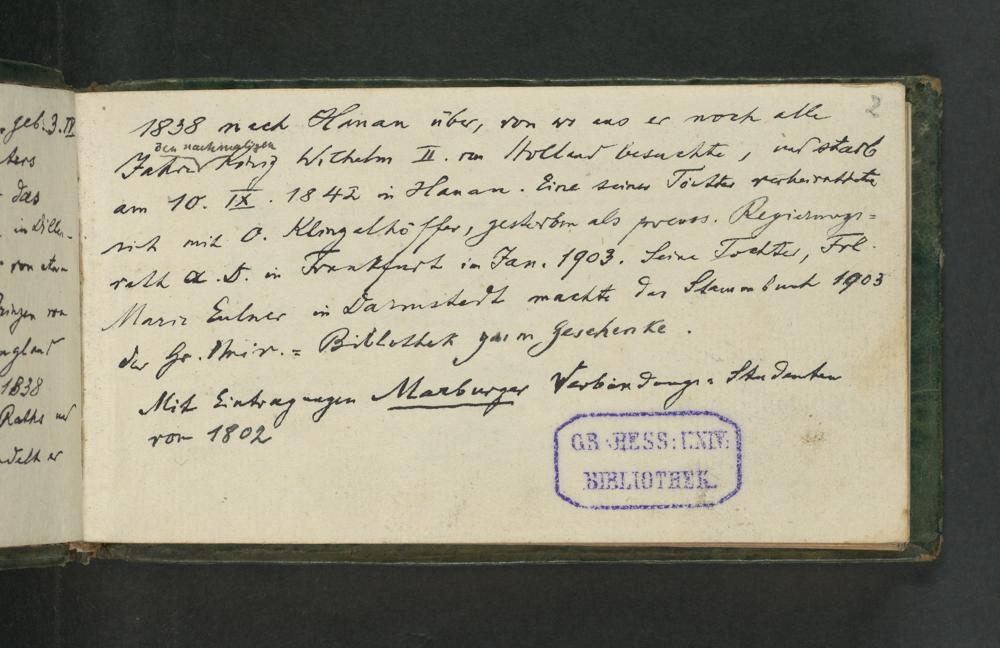 geb. 3. IV
ters
das
in Dillen-
von etwa
Prinzen von
England
1838
Raths und
siedelt er
2
1838 nach Hanau über, von wo aus er noch alle
den nachmaligen
Jahre König Wilhelm II. von Holland besuchte, und starb
am 10. IX. 1842 in Hanau. Eine seiner Töchter verheirathete
sich mit O. Klingelhöffer, gestorben als preuss. Regierungs=
rath a. D. in Frankfurt im Jan. 1903. Seine Tochter, Frl.
Marie Eulner in Darmstadt machte das Stammbuch 1903
der Gr. Univ. = Bibliothek zum Geschenke.
Mit Eintragungen Marburger Verbindungs= Studenten
von 1802
GR. HESS: UNIV.
BIBLIOTHEK.